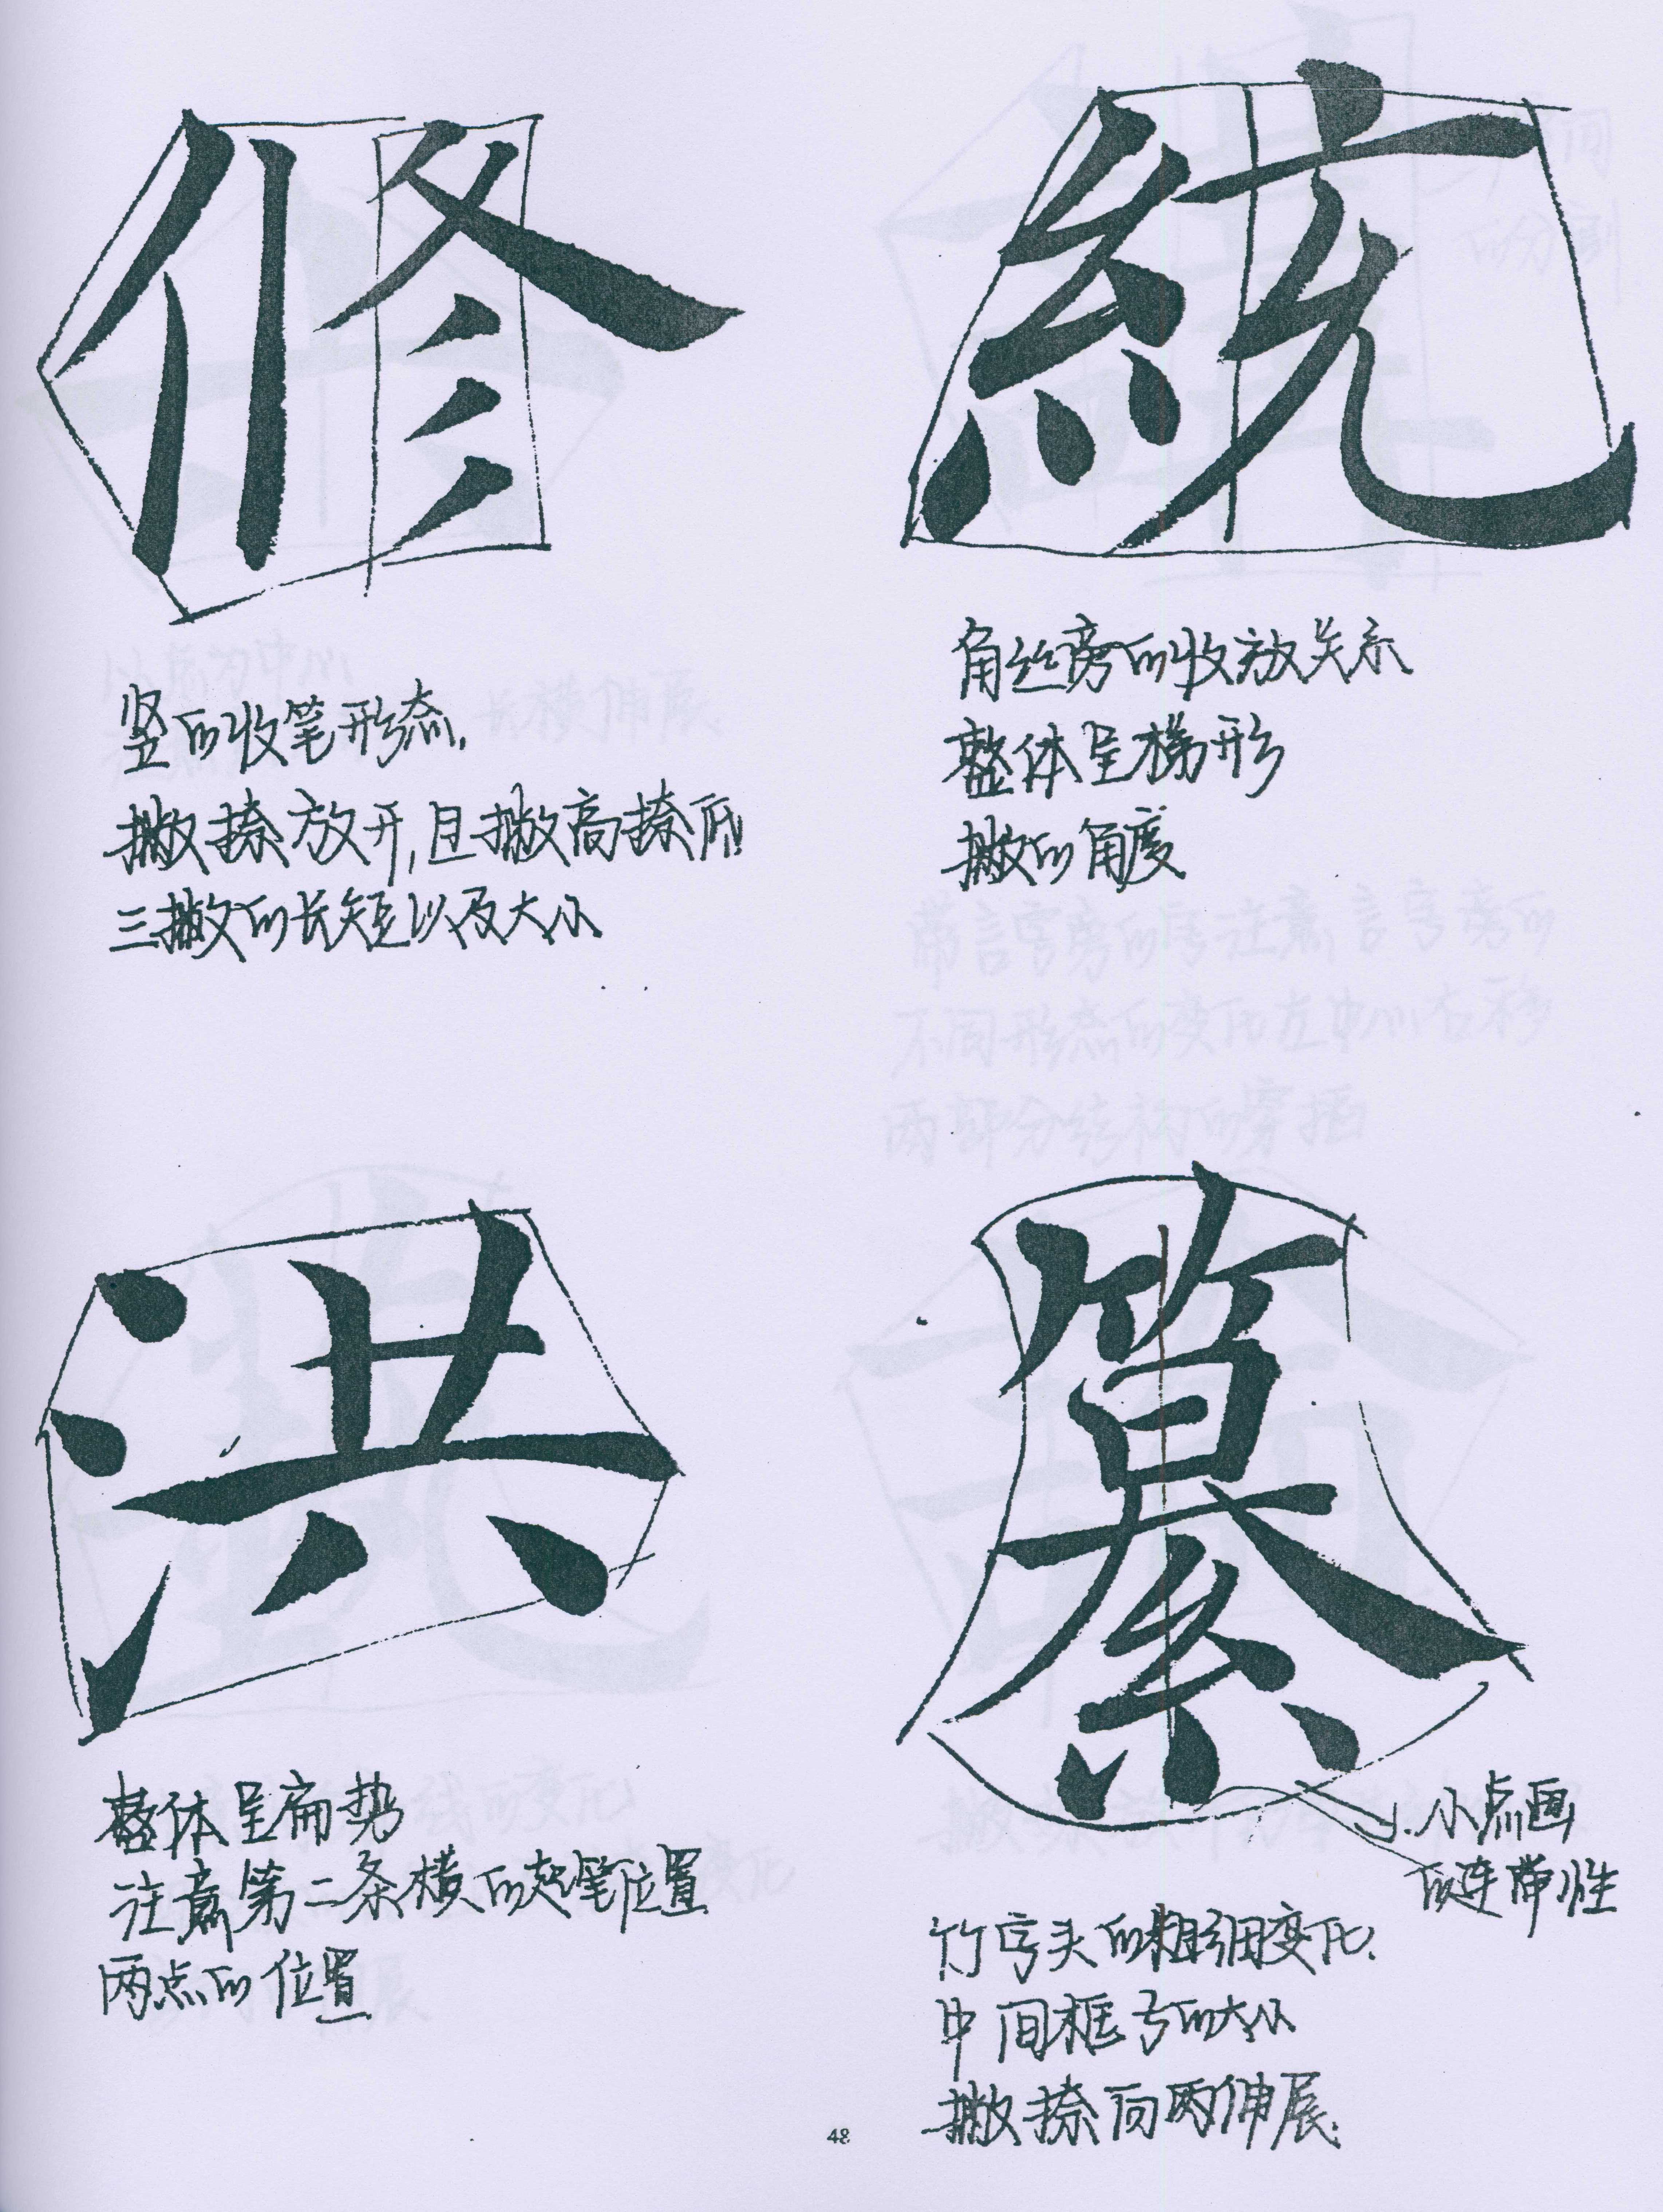 修
竖的收笔形态,
撇捺放开,且撇高捺低
三撇的长短以及大小
統
角丝旁的收放关系
整体呈梯形
撇的角度
洪
整体呈扁势
注意第二条横的起笔位置
两点的位置
纂
小点画
的连带性
竹字头的粗细变化.
中间框字的大小
撇捺向两伸展.
48